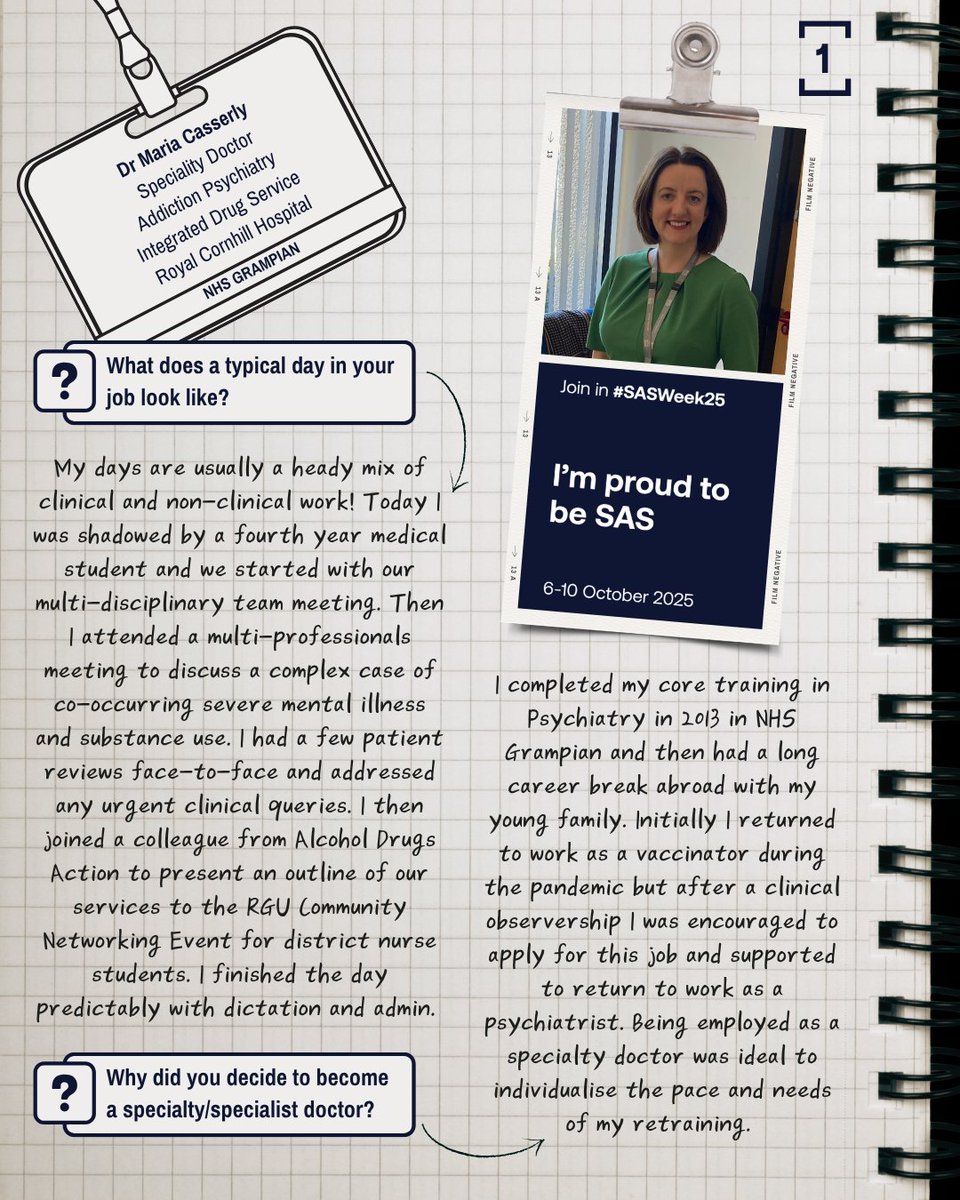 Dr Maria Casserly
Speciality Doctor
Addiction Psychiatry
Integrated Drug Service
Royal Cornhill Hospital
NHS GRAMPIAN
1
13
13 A
13
13 A
FILM NEGATIVE
FILM NEGATIVE
FILM NEGATIVE
Join in #SASWeek25
I'm proud to
be SAS
6-10 October 2025
?
What does a typical day in your
job look like?
My days are usually a heady mix of
clinical and non-clinical work! Today I
was shadowed by a fourth year medical
student and we started with our
multi-disciplinary team meeting. Then
I attended a multi-professionals
meeting to discuss a complex case of
co-occurring severe mental illness
and substance use. I had a few patient
reviews face-to-face and addressed
any urgent clinical queries. I then
joined a colleague from Alcohol Drugs
Action to present an outline of our
services to the RGU Community
Networking Event for district nurse
students. I finished the day
predictably with dictation and admin.
?
Why did you decide to become
a specialty/specialist doctor?
I completed my core training in
Psychiatry in 2013 in NHS
Grampian and then had a long
career break abroad with my
young family. Initially I returned
to work as a vaccinator during
the pandemic but after a clinical
observership I was encouraged to
apply for this job and supported
to return to work as a
psychiatrist. Being employed as a
specialty doctor was ideal to
individualise the pace and needs
of my retraining.